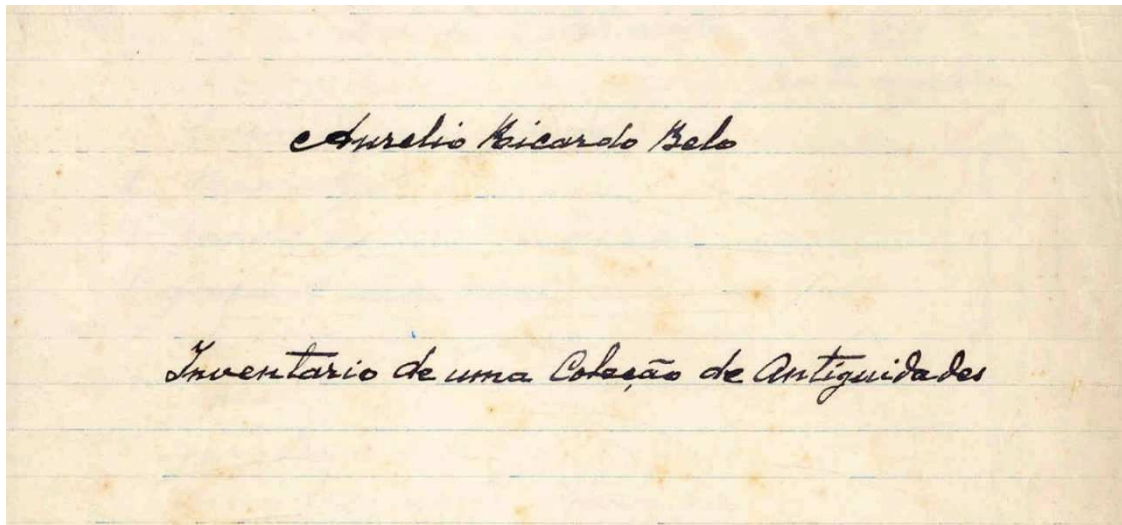 Aurelio Ricardo Belo
Inventario de uma Coleção de Antiguidades